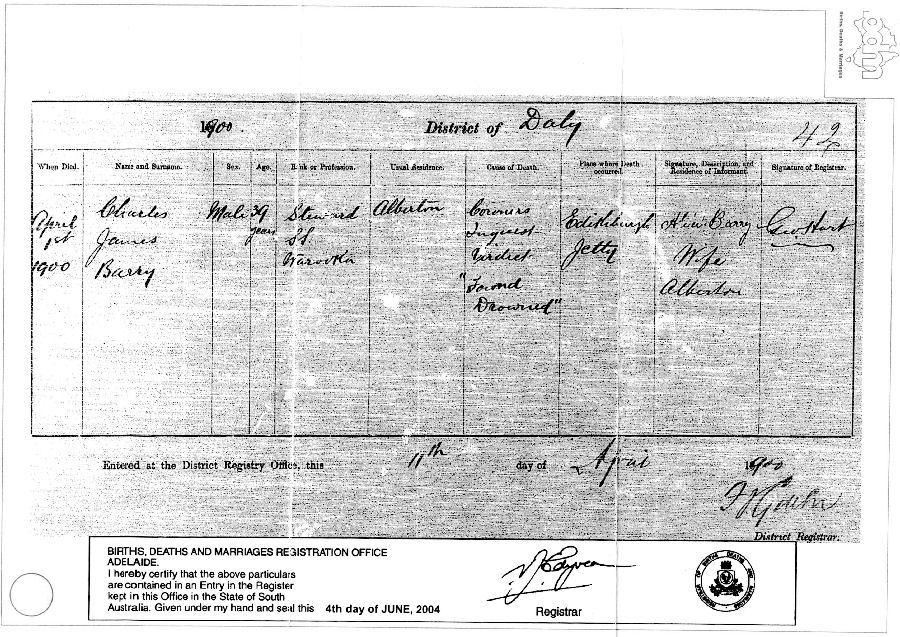 Births, Deaths & Marriages
bdm
1900. District of Daly 42
When Died. Name and Surname. Sex. Age. Rank or Profession. Usual Residence. Cause of Death. Place where Death occurred. Signature, Description, and Residence of Informant. Signature of Registrar.
April 1st 1900
Charles James Barry
Male
39 years
Steward SS. Warooka
Alberton
Coroners Inquest Verdict "Found Drowned"
Edithburgh Jetty
Barry Wife Alberton
Geo Hart
Entered at the District Registry Office, this 11th day of April 1900
District Registrar.
BIRTHS, DEATHS AND MARRIAGES REGISTRATION OFFICE
ADELAIDE.
I hereby certify that the above particulars
are contained in an Entry in the Register
kept in this Office in the State of South
Australia. Given under my hand and seal this 4th day of JUNE, 2004
Registrar